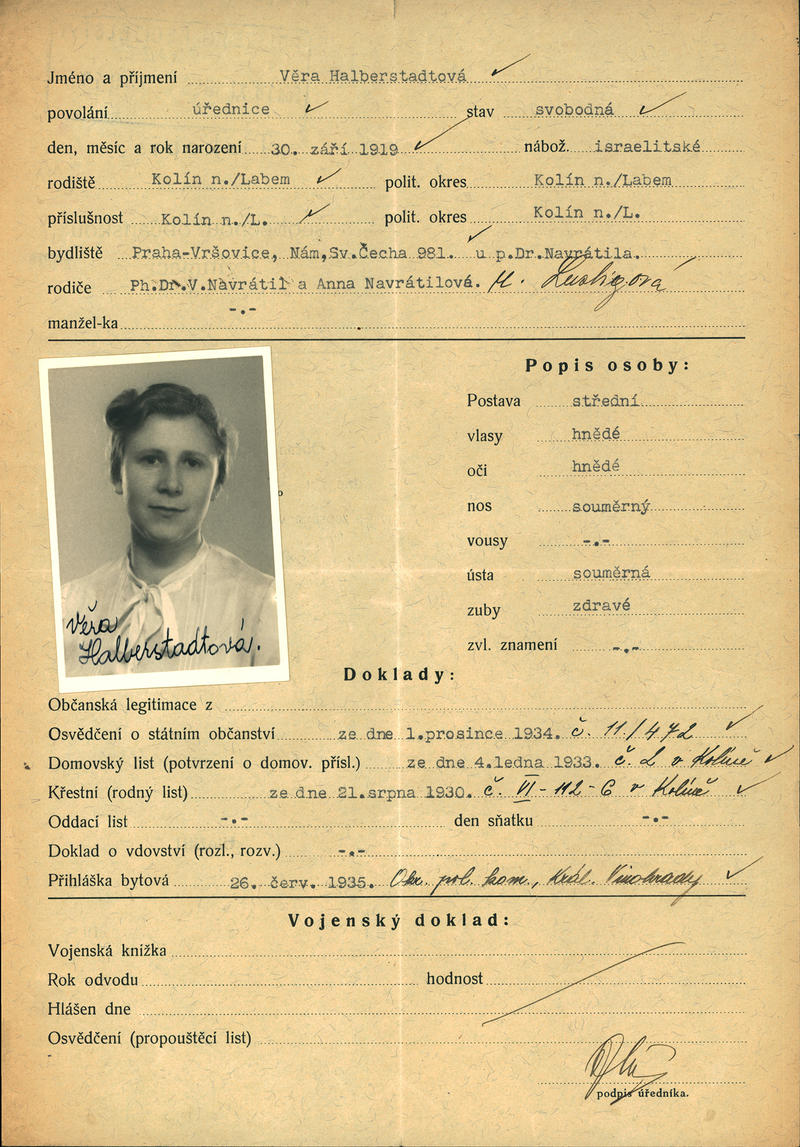 Jméno a příjmení Věra Halberstadtová
povolání úřednice stav svobodná
den, měsíc a rok narození 30. září 1919 nábož. israelitské
rodiště Kolín n./Labem polit. okres Kolín n./Labem
příslušnost Kolín n./L. polit. okres Kolín n./L.
bydliště Praha-Vršovice, Nám,Sv.Čecha 981. u p.Dr.Navrátila.
rodiče Ph.Dr.V.Navrátil a Anna Navrátilová. Lustigová
manžel-ka -.-
Popis osoby:
Postava střední
vlasy hnědé
oči hnědé
nos souměrný
vousy -.-
ústa souměrná
zuby zdravé
zvl. znamení -.-
Věra
Halberstadtová.
Doklady:
Občanská legitimace z
Osvědčení o státním občanství ze dne 1.prosince 1934. č. 11/472
Domovský list (potvrzení o domov. přísl.) ze dne 4.ledna 1933. č. 2 v Kolíně
Křestní (rodný list) ze dne 21.srpna 1930. č. VI-112-6 v Kolíně
Oddací list -.- den sňatku -.-
Doklad o vdovství (rozl., rozv.) -.-
Přihláška bytová 26. červ. 1935. Okr. pol. kom., Král. Vinohrady
Vojenský doklad:
Vojenská knížka
Rok odvodu hodnost
Hlášen dne
Osvědčení (propouštěcí list)
podpis úředníka.